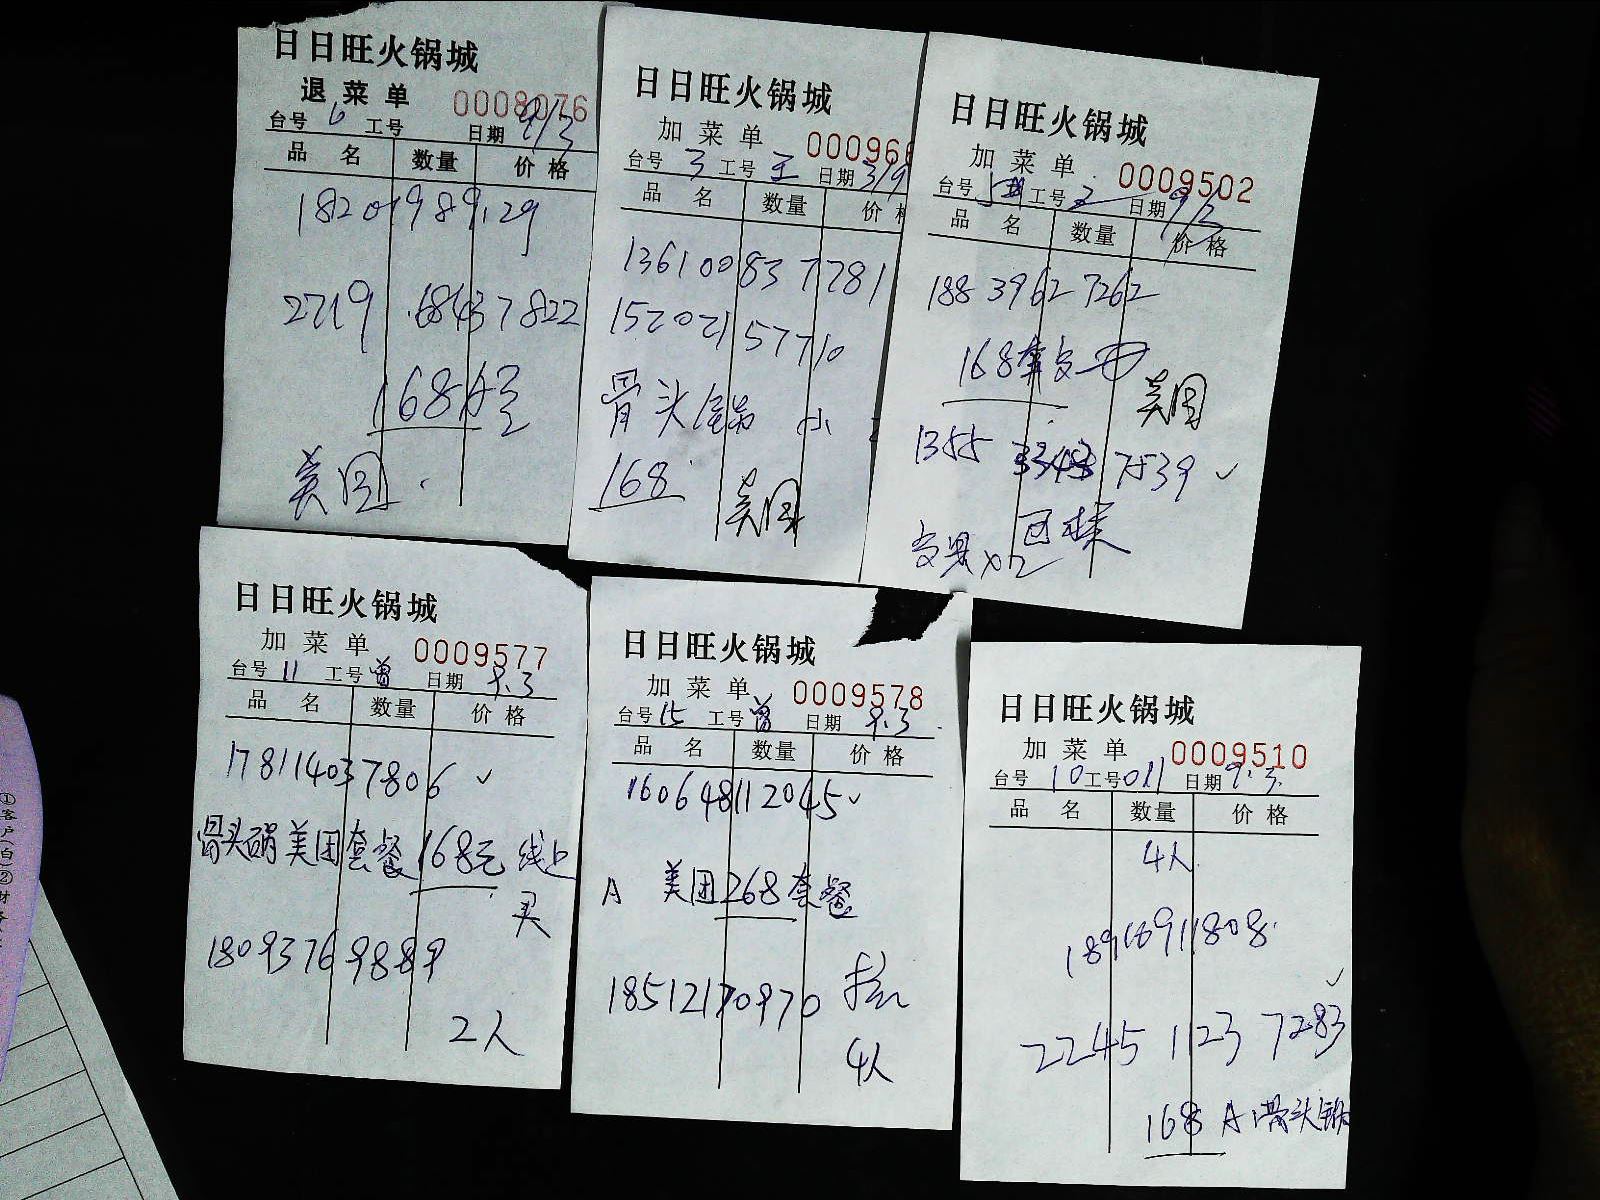 日日旺火锅城
退菜单 0008076
台号 6 工号 日期 9/3
品名 数量 价格
18201989129
2719 6843 7822
168
美团
日日旺火锅城
加菜单 000968
台号 3 工号 王 日期 3/9
品名 数量 价格
136100837781
15202157710
骨头锅 小
168
美团
日日旺火锅城
加菜单 0009502
台号 工号 日期 9/3
品名 数量 价格
188 3962 7262
168套
美团
1355 7539 ✓
×2
日日旺火锅城
加菜单 0009577
台号 11 工号 曾 日期 9.3
品名 数量 价格
178114037806 ✓
骨头锅美团套餐168元 线上
买
18093769889
2人
日日旺火锅城
加菜单 0009578
台号 15 工号 曾 日期 9.3
品名 数量 价格
160648112045 ✓
A 美团268套餐
18512170970
4人
日日旺火锅城
加菜单 0009510
台号 10 工号 011 日期 9.3
品名 数量 价格
4人
18916911808 ✓
2245 1123 7283
168 A 骨头锅
①客户(白)②财务